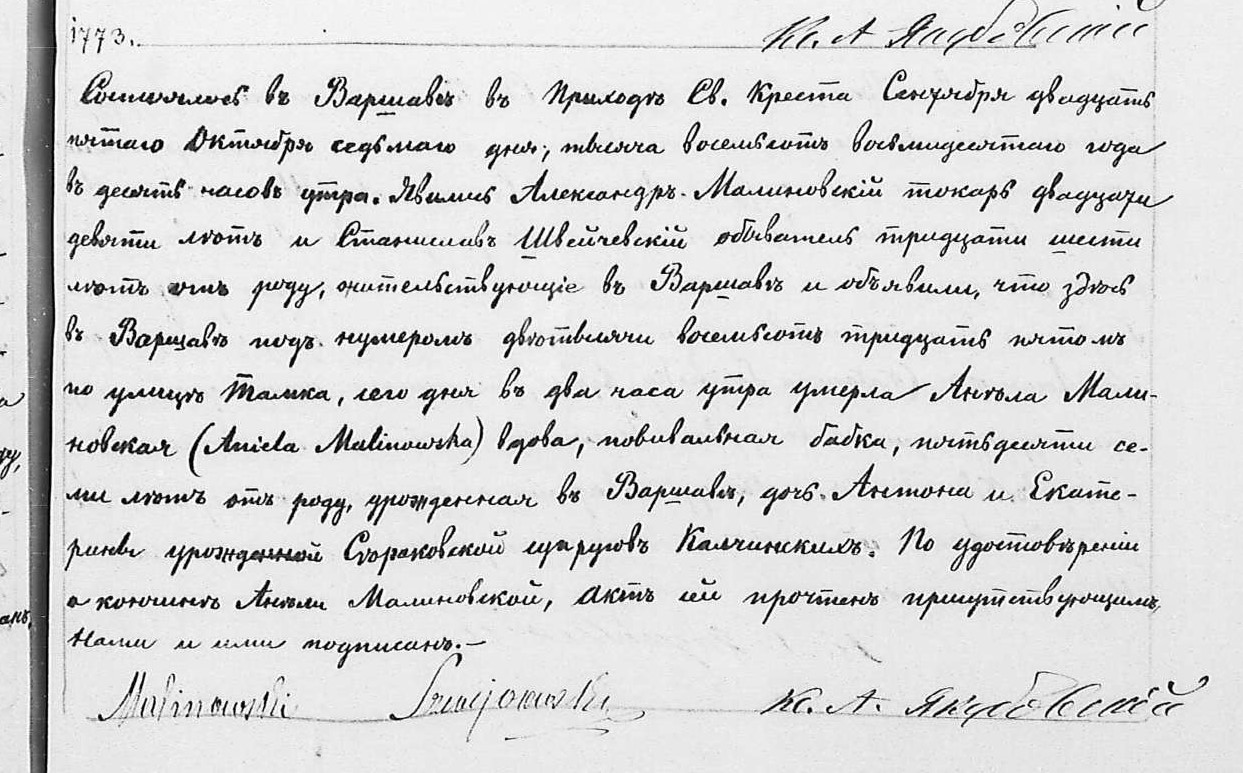 1773.
Кс. А Якубовскій
Состоялось въ Варшавѣ въ Приходѣ Св. Креста Сентября двадцать
пятаго Октября седьмаго дня, тысяча восемьсотъ восьмидесятаго года
въ десять часовъ утра. Явились Александръ Малиновскій токарь двадцати
девяти лѣтъ и Станиславъ Швейчевскій обыватель тридцати шести
лѣтъ отъ роду, жительствующіе въ Варшавѣ и объявили, что здѣсь
въ Варшавѣ подъ нумеромъ двѣтысячи восемьсотъ тридцать пятомъ
по улицѣ Тамка, сего дня въ два часа утра умерла Анѣла Мали-
новская (Aniela Malinowska) вдова, повивальная бабка, пятьдесяти се-
ми лѣтъ отъ роду, урожденная въ Варшавѣ, дочь Антона и Екате-
рины урожденной супруговъ Калчинскихъ. По удостовѣреніи
о кончинѣ Анѣли Малиновской, Актъ сей прочтенъ присутствующимъ,
Нами и ими подписанъ.—
Malinowski
Кс. А. Якубовскій